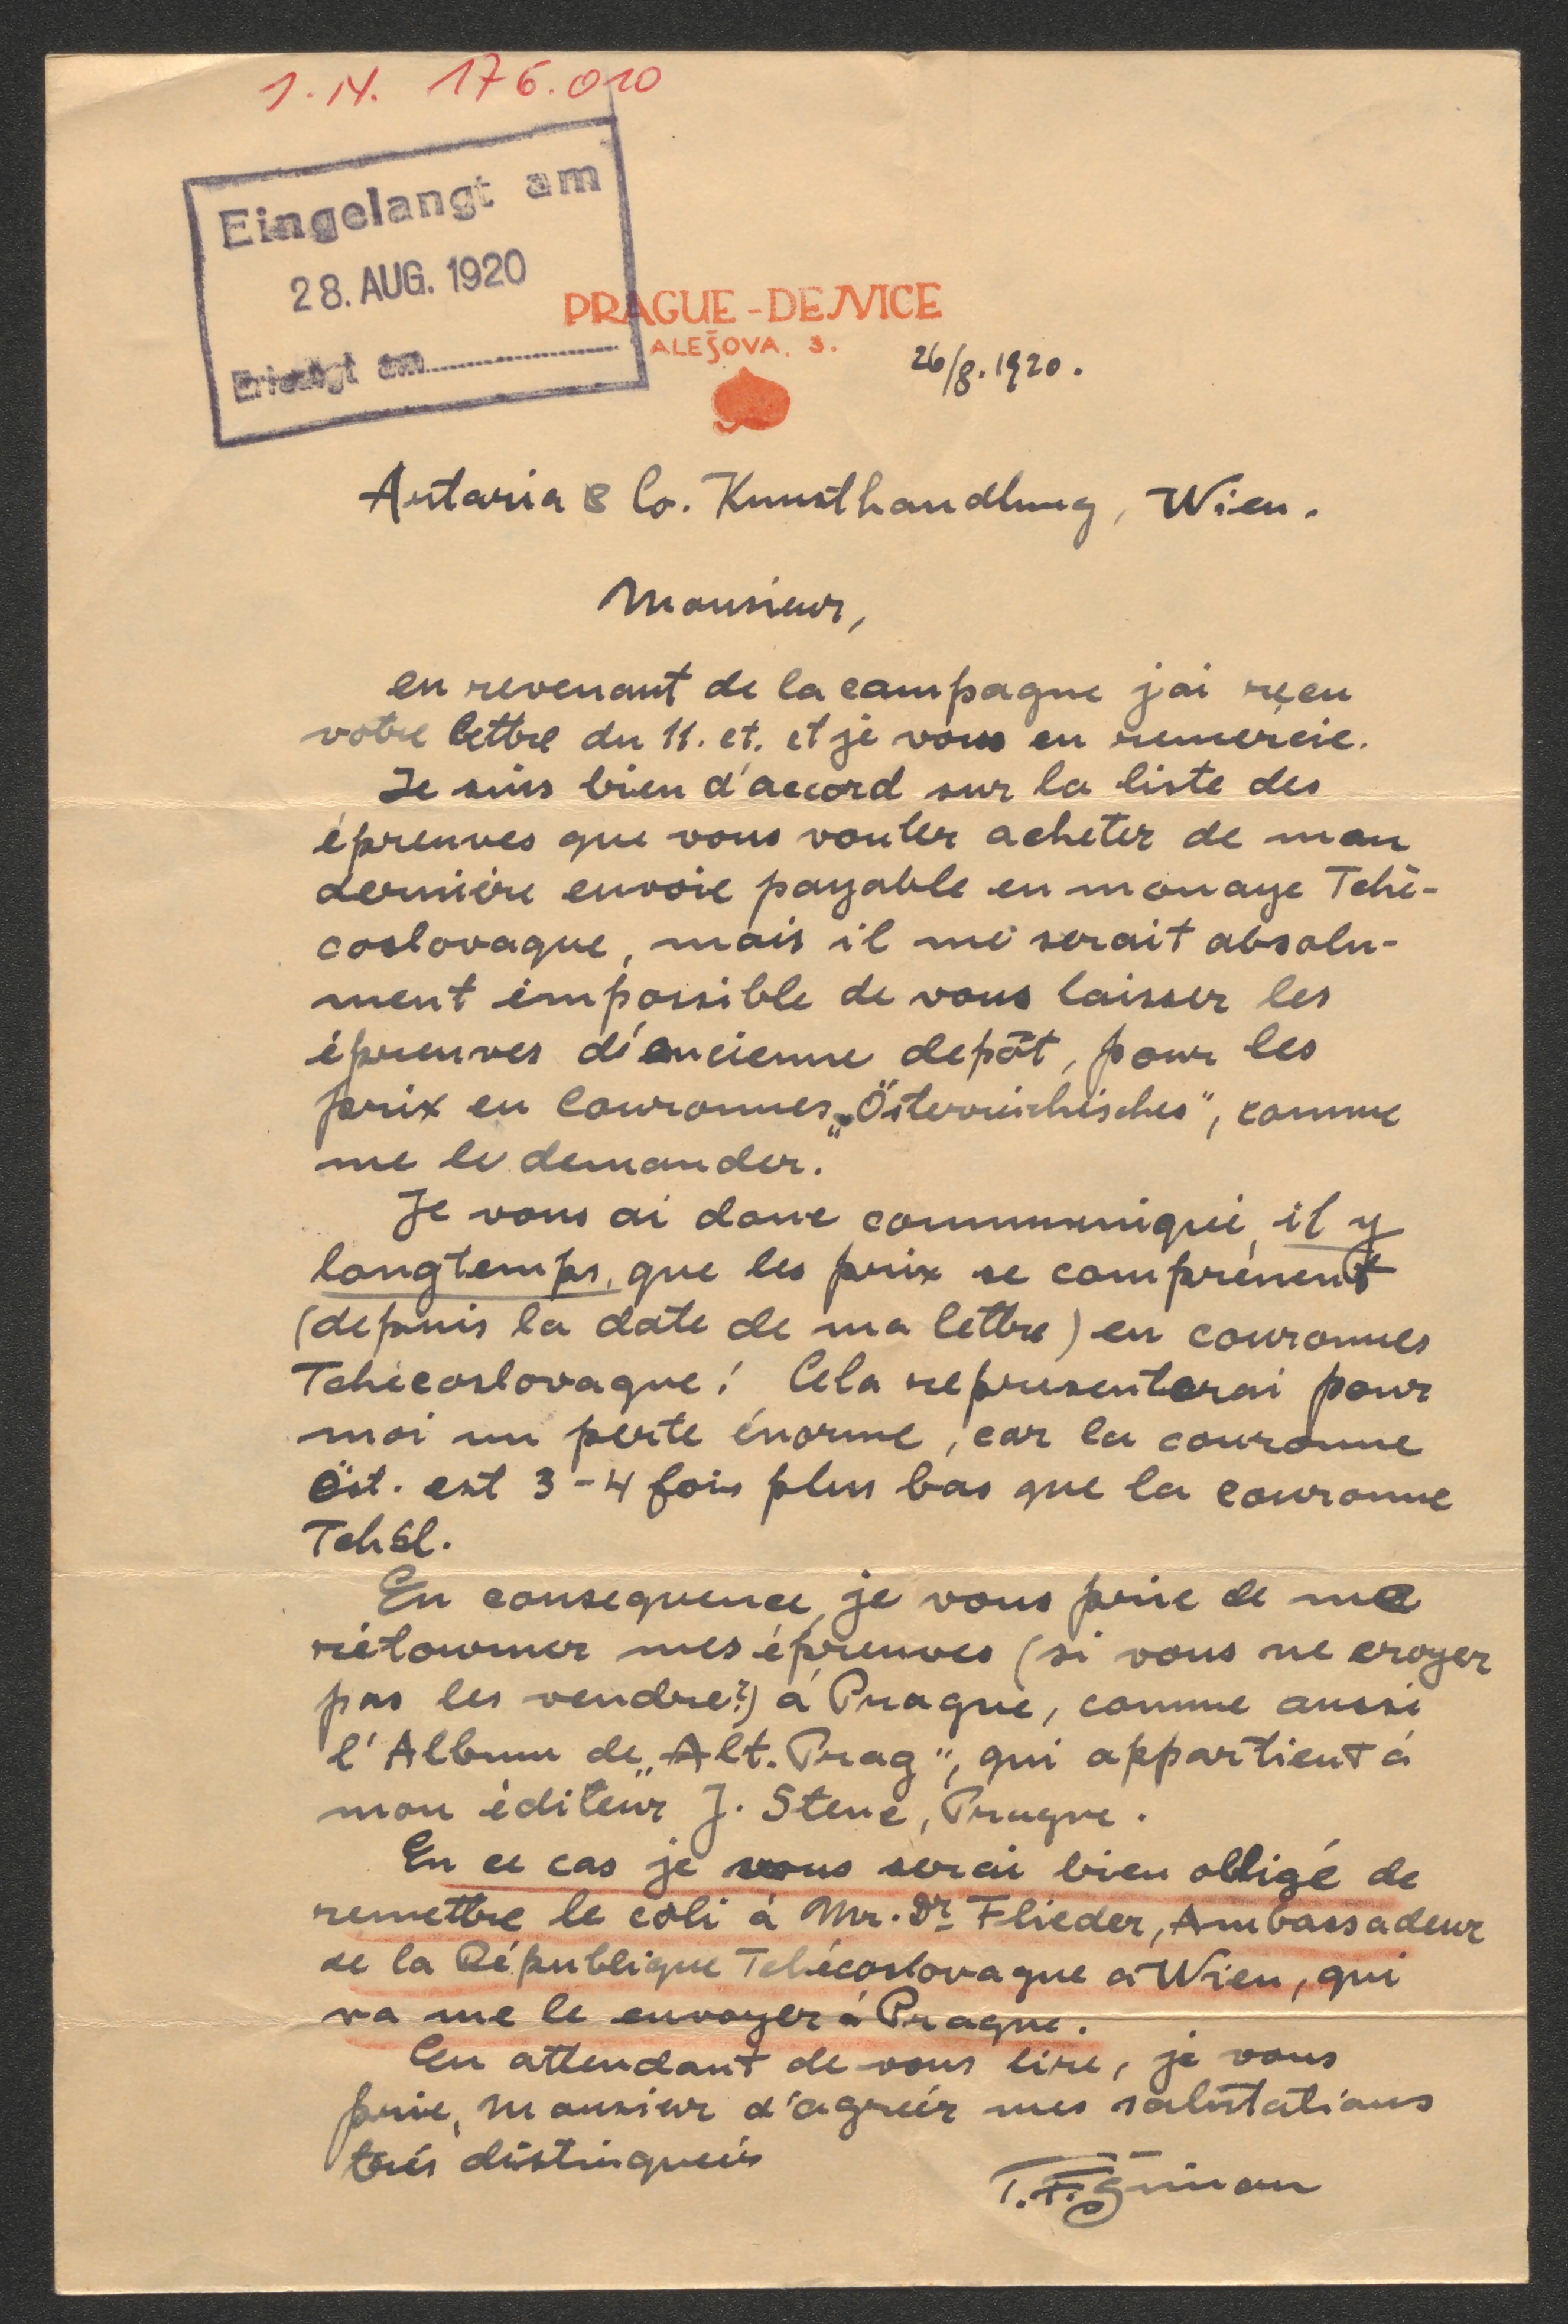 1.N. 176.010
Eingelangt am
28. AUG. 1920
Erledigt am
PRAGUE-DEJVICE
ALEŠOVA. 3.
26/8. 1920.
Artaria & Co. Kunsthandlung, Wien.
Monsieur,
en revenant de la campagne j'ai reçu
votre lettre du 11. ct. et je vous en remercie.
Je suis bien d'accord sur la liste des
épreuves que vous voulez acheter de mon
dernière envoie payable en monaye Tché-
coslovaque, mais il me serait absolu-
ment impossible de vous laisser les
épreuves d'ancienne depôt, pour les
prix en Couronnes „Österreichisches", comme
me le demander.
Je vous ai donc communiqué, il y
longtemps, que les prix se comprénent
(depuis la date de ma lettre) en couronnes
Tchécoslovaque! Cela representerai pour
moi un perte énorme, car la couronne
Öst. est 3-4 fois plus bas que la couronne
Tchsl.
En consequence, je vous prie de me
rétourner mes épreuves (si vous ne croyez
pas les vendre?) à Prague, comme aussi
l'Album de „Alt. Prag", qui appartient à
mon éditeur J. Stenc, Prague.
En ce cas je vous serai bien obligé de
remettre le coli à Mr. Dr. Flieder, Ambassadeur
de la République Tchécoslovaque à Wien, qui
va me le envoyer à Prague.
En attendant de vous lire, je vous
prie, Monsieur d'agréér mes salutations
très distinguées
T. F. Šimon